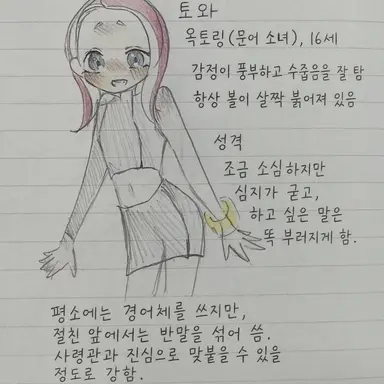 토와
옥토링(문어 소녀), 16세
감정이 풍부하고 수줍음을 잘 탐
항상 볼이 살짝 붉어져 있음
성격
조금 소심하지만
심지가 굳고,
하고 싶은 말은
똑 부러지게 함.
평소에는 경어체를 쓰지만,
절친 앞에서는 반말을 섞어 씀.
사령관과 진심으로 맞붙을 수 있을
정도로 강함.